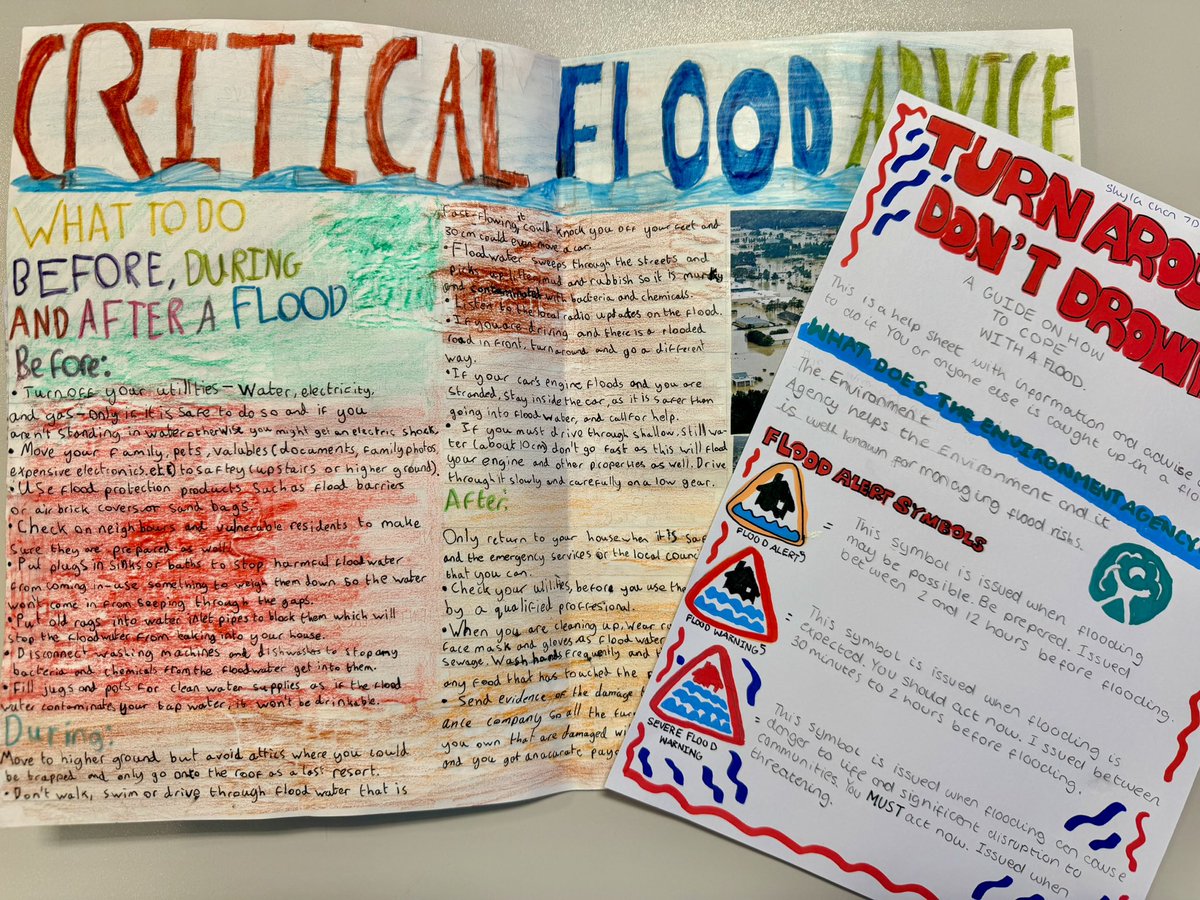 CRITICAL FLOOD ADVICE
WHAT TO DO
BEFORE, DURING
AND AFTER A FLOOD
Before:
• Turn off your utilities - Water, electricity,
and gas - Only if it is safe to do so and if you
aren't standing in water otherwise you might get an electric shock.
• Move your family, pets, valubles (documents, family photos,
expensive electronics.etc) to saftey (upstairs or higher ground).
• Use flood protection products such as flood barriers
or air brick covers or sand bags.
• Check on neighbours and vulnerable residents to make
sure they are prepared as well.
• Put plugs in sinks or baths to stop harmful floodwater
from coming in - use something to weigh them down so the water
wont come in from seeping through the gaps.
• Put old rags into water inlet pipes to block them which will
stop the floodwater from taking into your house.
• Disconnect washing machines and dishwashers to stop any
bacteria and chemicals from the floodwater get into them.
• Fill jugs and pots for clean water supplies as if the flood
water contaminates your tap water, it won't be drinkable.
During:
Move to higher ground but avoid attics where you could
be trapped and only go onto the roof as a last resort.
• Don't walk, swim or drive through flood water that is
fast-flowing, it could knock you off your feet and
30cm could even move a car.
• Floodwater sweeps through the streets and
picks up mud and rubbish so it is murky
and contaminated with bacteria and chemicals.
• Listen to the local radio updates on the flood.
• If you are driving and there is a flooded
road in front, turn around and go a different
way.
• If your car's engine floods and you are
stranded, stay inside the car, as it is safer than
going into flood water, and call for help.
• If you must drive through shallow, still wa-
ter (about 10cm) don't go fast as this will flood
your engine and other properties as well. Drive
through it slowly and carefully on a low gear.
After:
Only return to your house when it is
and the emergency services or the local
that you can.
• Check your utilities, before you use
by a qualified proffresional.
• When you are cleaning up, wear
face mask and gloves as flood water
sewage. Wash hands frequently and
any food that has touched the
• Send evidence of the damage
ance company so all the
you own that are damaged
and you got anacurate
Skyla Chan 7D
TURN
DON'T DROWN
A GUIDE ON HOW
TO COPE
WITH A FLOOD.
This is a help sheet with information and advise
to do if You or anyone else is caught up in a
WHAT DOES THE ENVIRONMENT AGENCY
The Environment
Agency helps the Environment and it
is well known for managing flood risks.
FLOOD ALERT SYMBOLS
FLOOD ALERTS
= This symbol is issued when flooding
may be possible. Be prepared. Issued
between 2 and 12 hours before flooding.
FLOOD WARNINGS
= This symbol is issued when flooding is
expected. You should act now. I issued between
30 minutes to 2 hours before flooding.
SEVERE FLOOD
WARNING
= This symbol is issued when flooding can cause
danger to life and significant disruption to
communities. You MUST act now. Issued when
threatening.